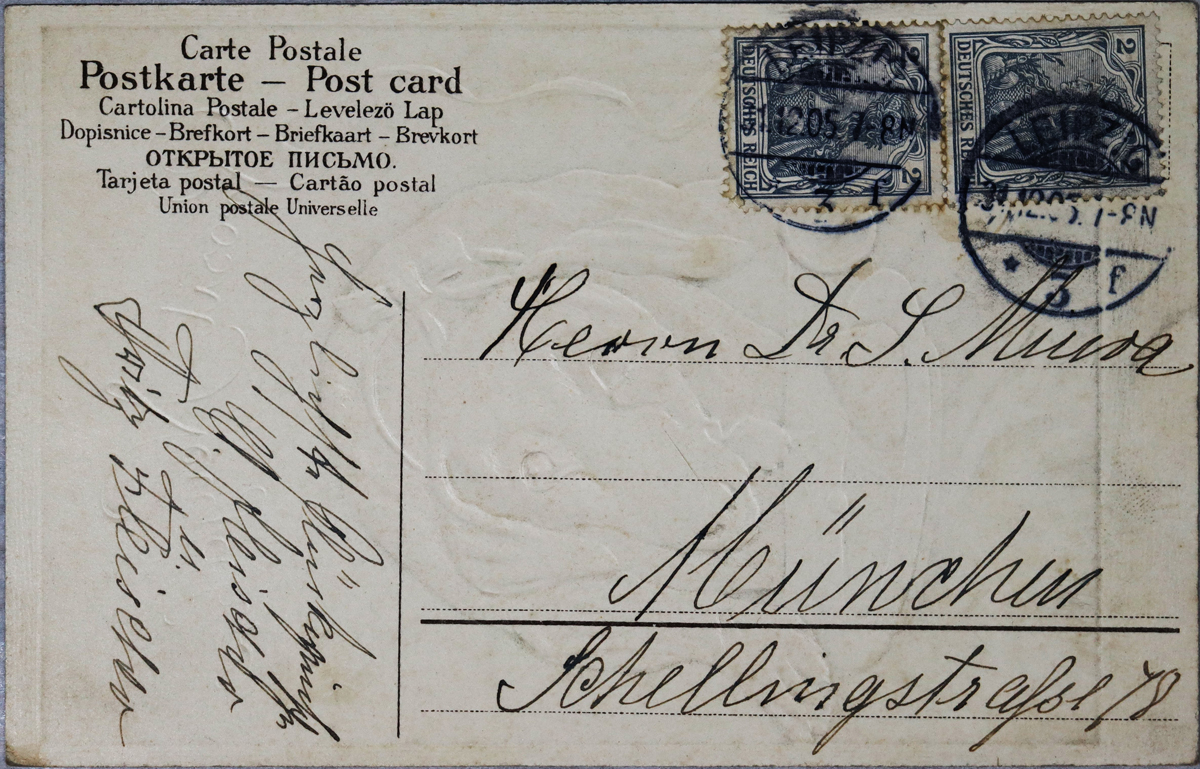 Carte Postale
Postkarte — Post card
Cartolina Postale – Levelező Lap
Dopisnice – Brefkort – Briefkaart – Brevkort
ОТКРЫТОЕ ПИСЬМО.
Tarjeta postal — Cartão postal
Union postale Universelle
DEUTSCHES REICH
2
2
DEUTSCHES REICH
2
LEIPZIG
12.05. 7-8N
3 f
LEIPZIG
31.12.05. 7-8N
* 3 f
Herrn Dr. S.
München
Schellingstraße 78
Fritz